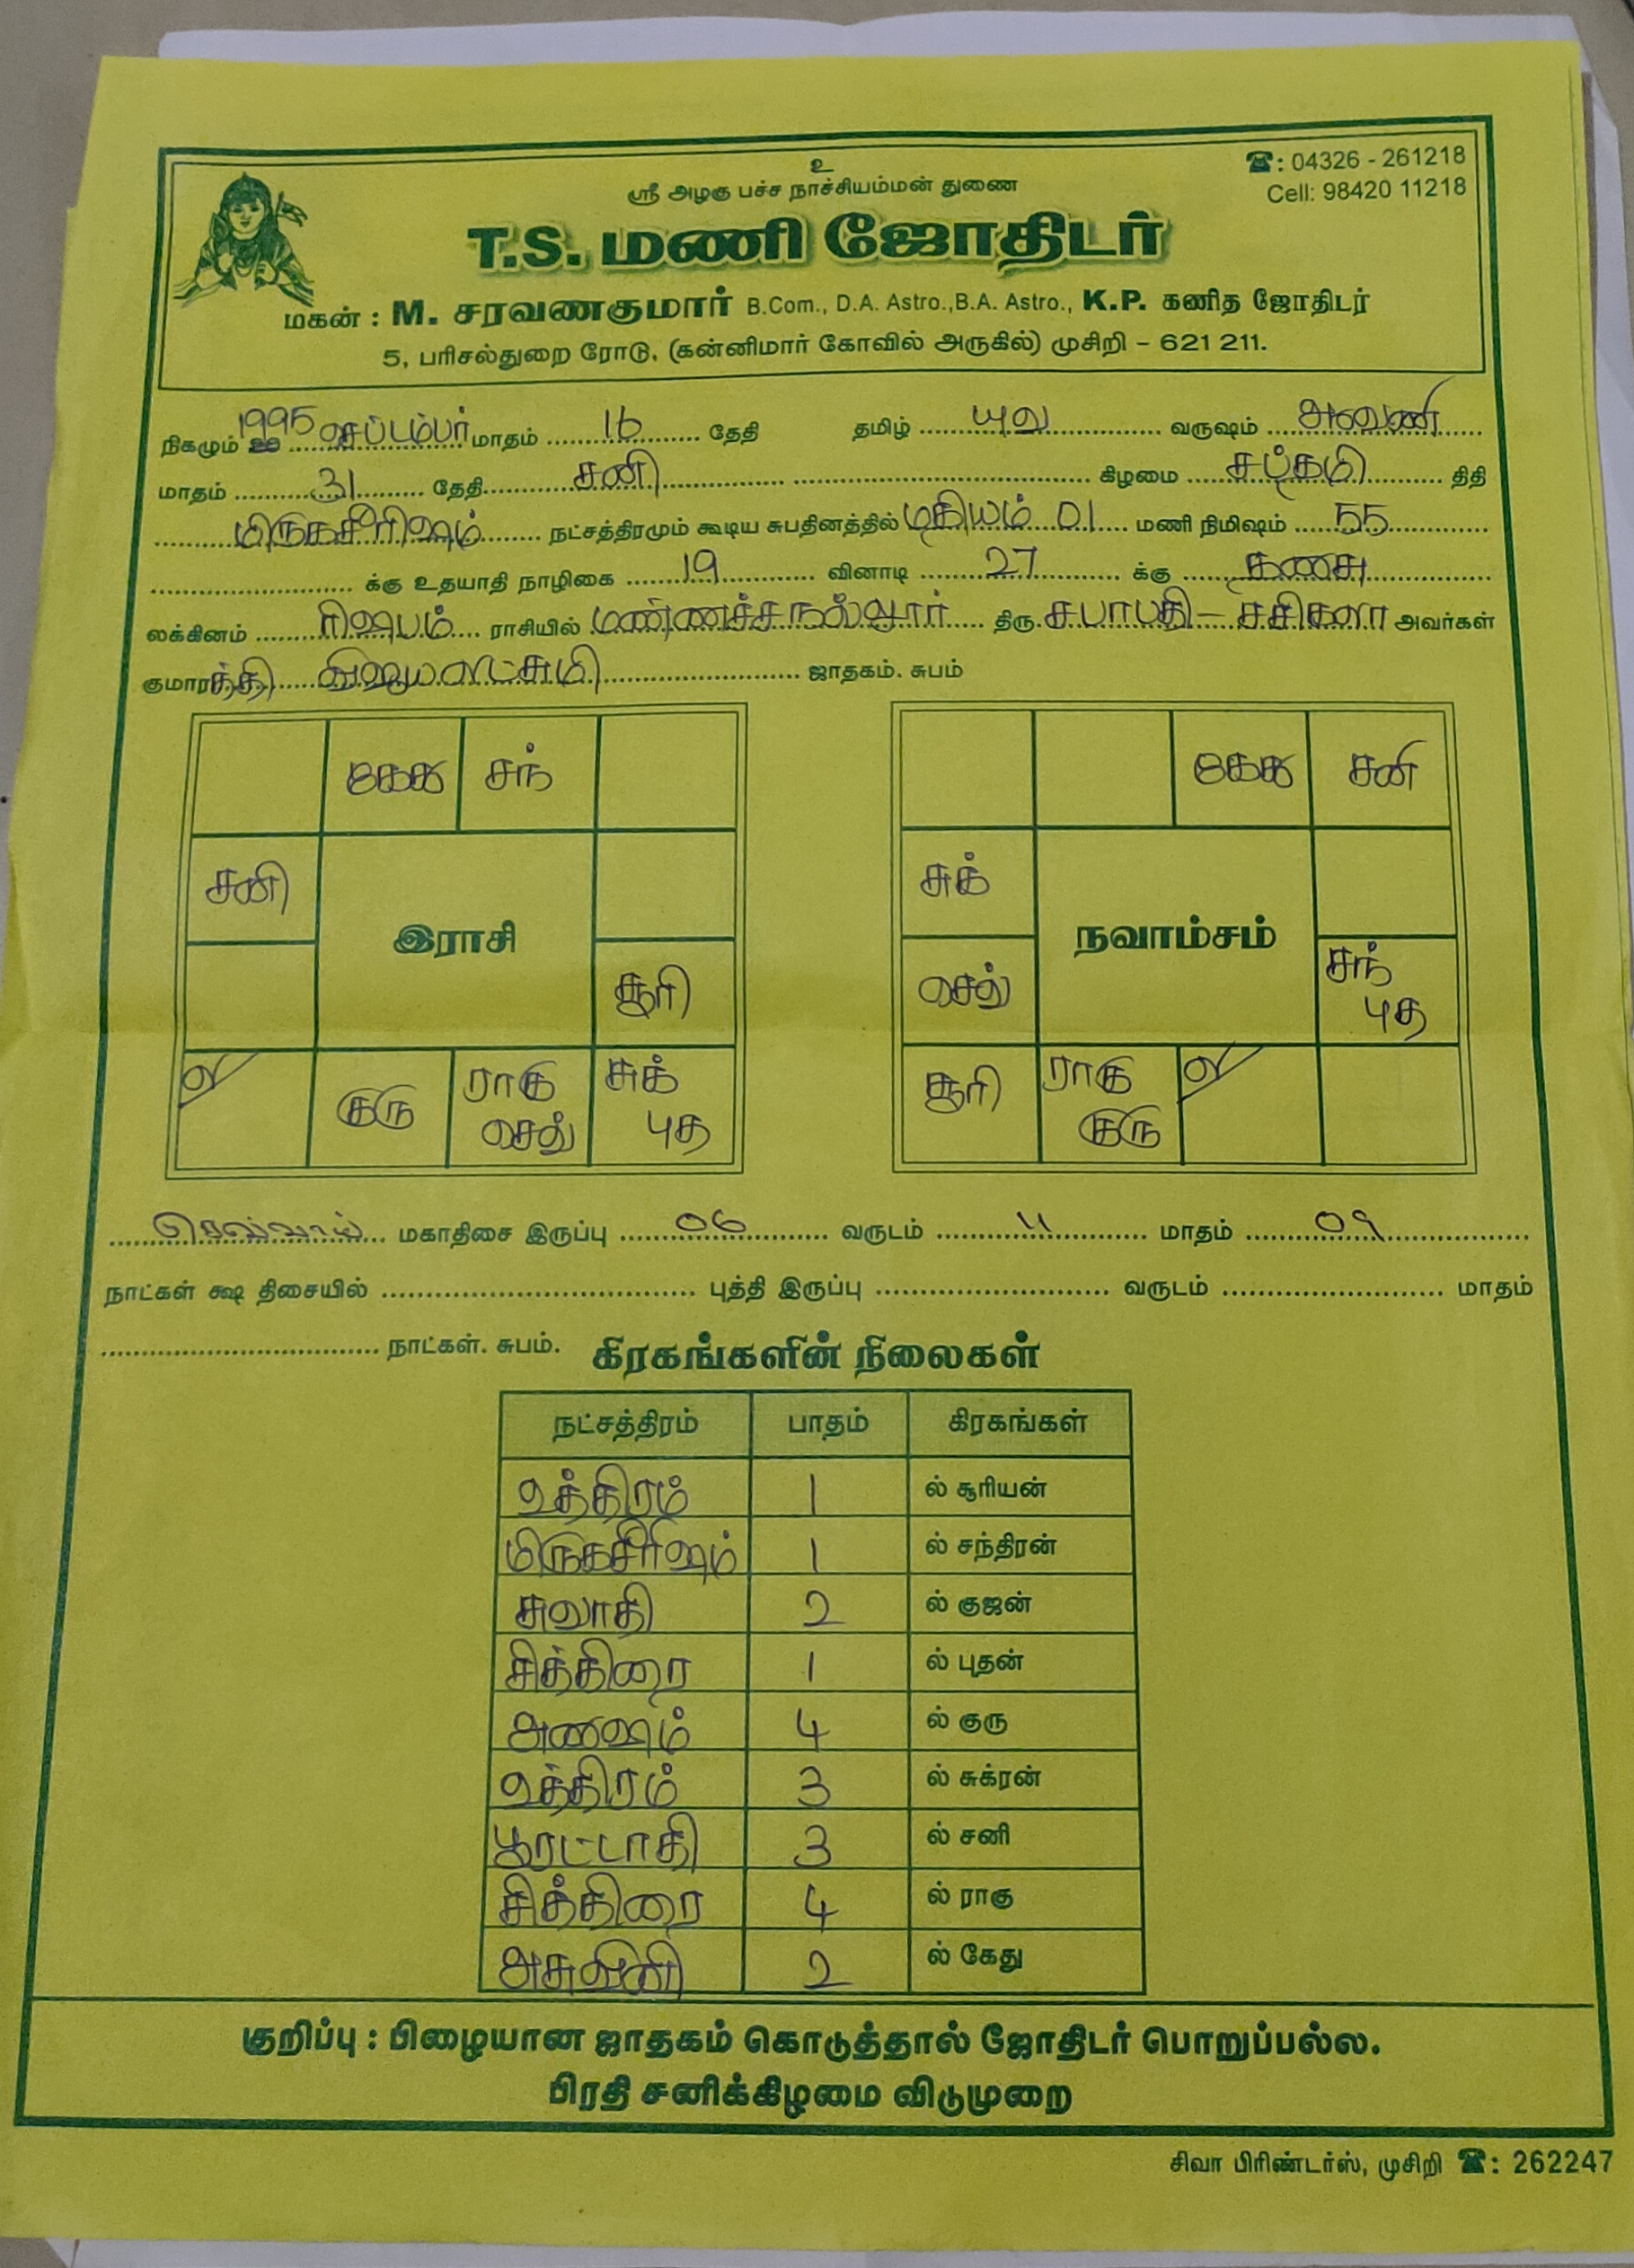 உ
ஸ்ரீ அழகு பச்ச நாச்சியம்மன் துணை
☎: 04326 - 261218
Cell: 98420 11218
T.S. மணி ஜோதிடர்
மகன் : M. சரவணகுமார் B.Com., D.A. Astro.,B.A. Astro., K.P. கணித ஜோதிடர்
5, பரிசல்துறை ரோடு, (கன்னிமார் கோவில் அருகில்) முசிறி - 621 211.
நிகழும் 1995 செப்டம்பர் மாதம் 16 தேதி தமிழ் யுவ வருஷம் ஆவணி
மாதம் 31 தேதி சனி கிழமை சப்தமி திதி
மிருகசீரிஷம் நட்சத்திரமும் கூடிய சுபதினத்தில் மதியம் 01 மணி நிமிஷம் 55
க்கு உதயாதி நாழிகை 19 வினாடி 27 க்கு தனுசு
லக்கினம் ரிஷபம் ராசியில் மண்ணச்சநல்லூர் திரு. சபாபதி - சசிகலா அவர்கள்
குமாரத்தி விஜயலட்சுமி ஜாதகம். சுபம்
கேது சந்
சனி
இராசி
சூரி
ல குரு ராகு செவ் சுக் புத
கேது சனி
சுக்
நவாம்சம்
செவ் சந் புத
சூரி ராகு குரு ல
செவ்வாய் மகாதிசை இருப்பு 06 வருடம் 11 மாதம் 09
நாட்கள் க்ஷ திசையில் புத்தி இருப்பு வருடம் மாதம்
நாட்கள். சுபம்.
கிரகங்களின் நிலைகள்
நட்சத்திரம் பாதம் கிரகங்கள்
உத்திரம் 1 ல் சூரியன்
மிருகசீரிஷம் 1 ல் சந்திரன்
சுவாதி 2 ல் குஜன்
சித்திரை 1 ல் புதன்
அனுஷம் 4 ல் குரு
உத்திரம் 3 ல் சுக்ரன்
பூரட்டாதி 3 ல் சனி
சித்திரை 4 ல் ராகு
அசுவினி 2 ல் கேது
குறிப்பு : பிழையான ஜாதகம் கொடுத்தால் ஜோதிடர் பொறுப்பல்ல.
பிரதி சனிக்கிழமை விடுமுறை
சிவா பிரிண்டர்ஸ், முசிறி ☎: 262247